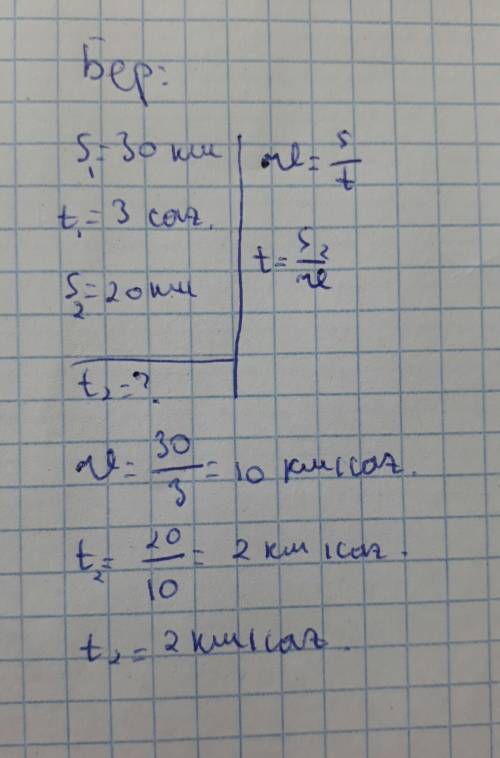 Бер:
S₁=30 км
t₁=3 сағ.
S₂=20км
t₂=?
υ=s/t
t=S₂/υ
υ=30/3=10 км/сағ.
t₂=20/10=2 км/сағ.
t₂=2 км/сағ.